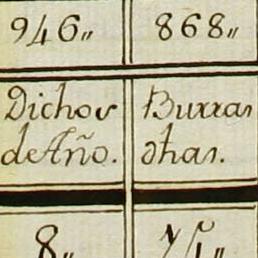 946,, 868,,
Dichos Burras
de Año. dhas.
8,, 71,,